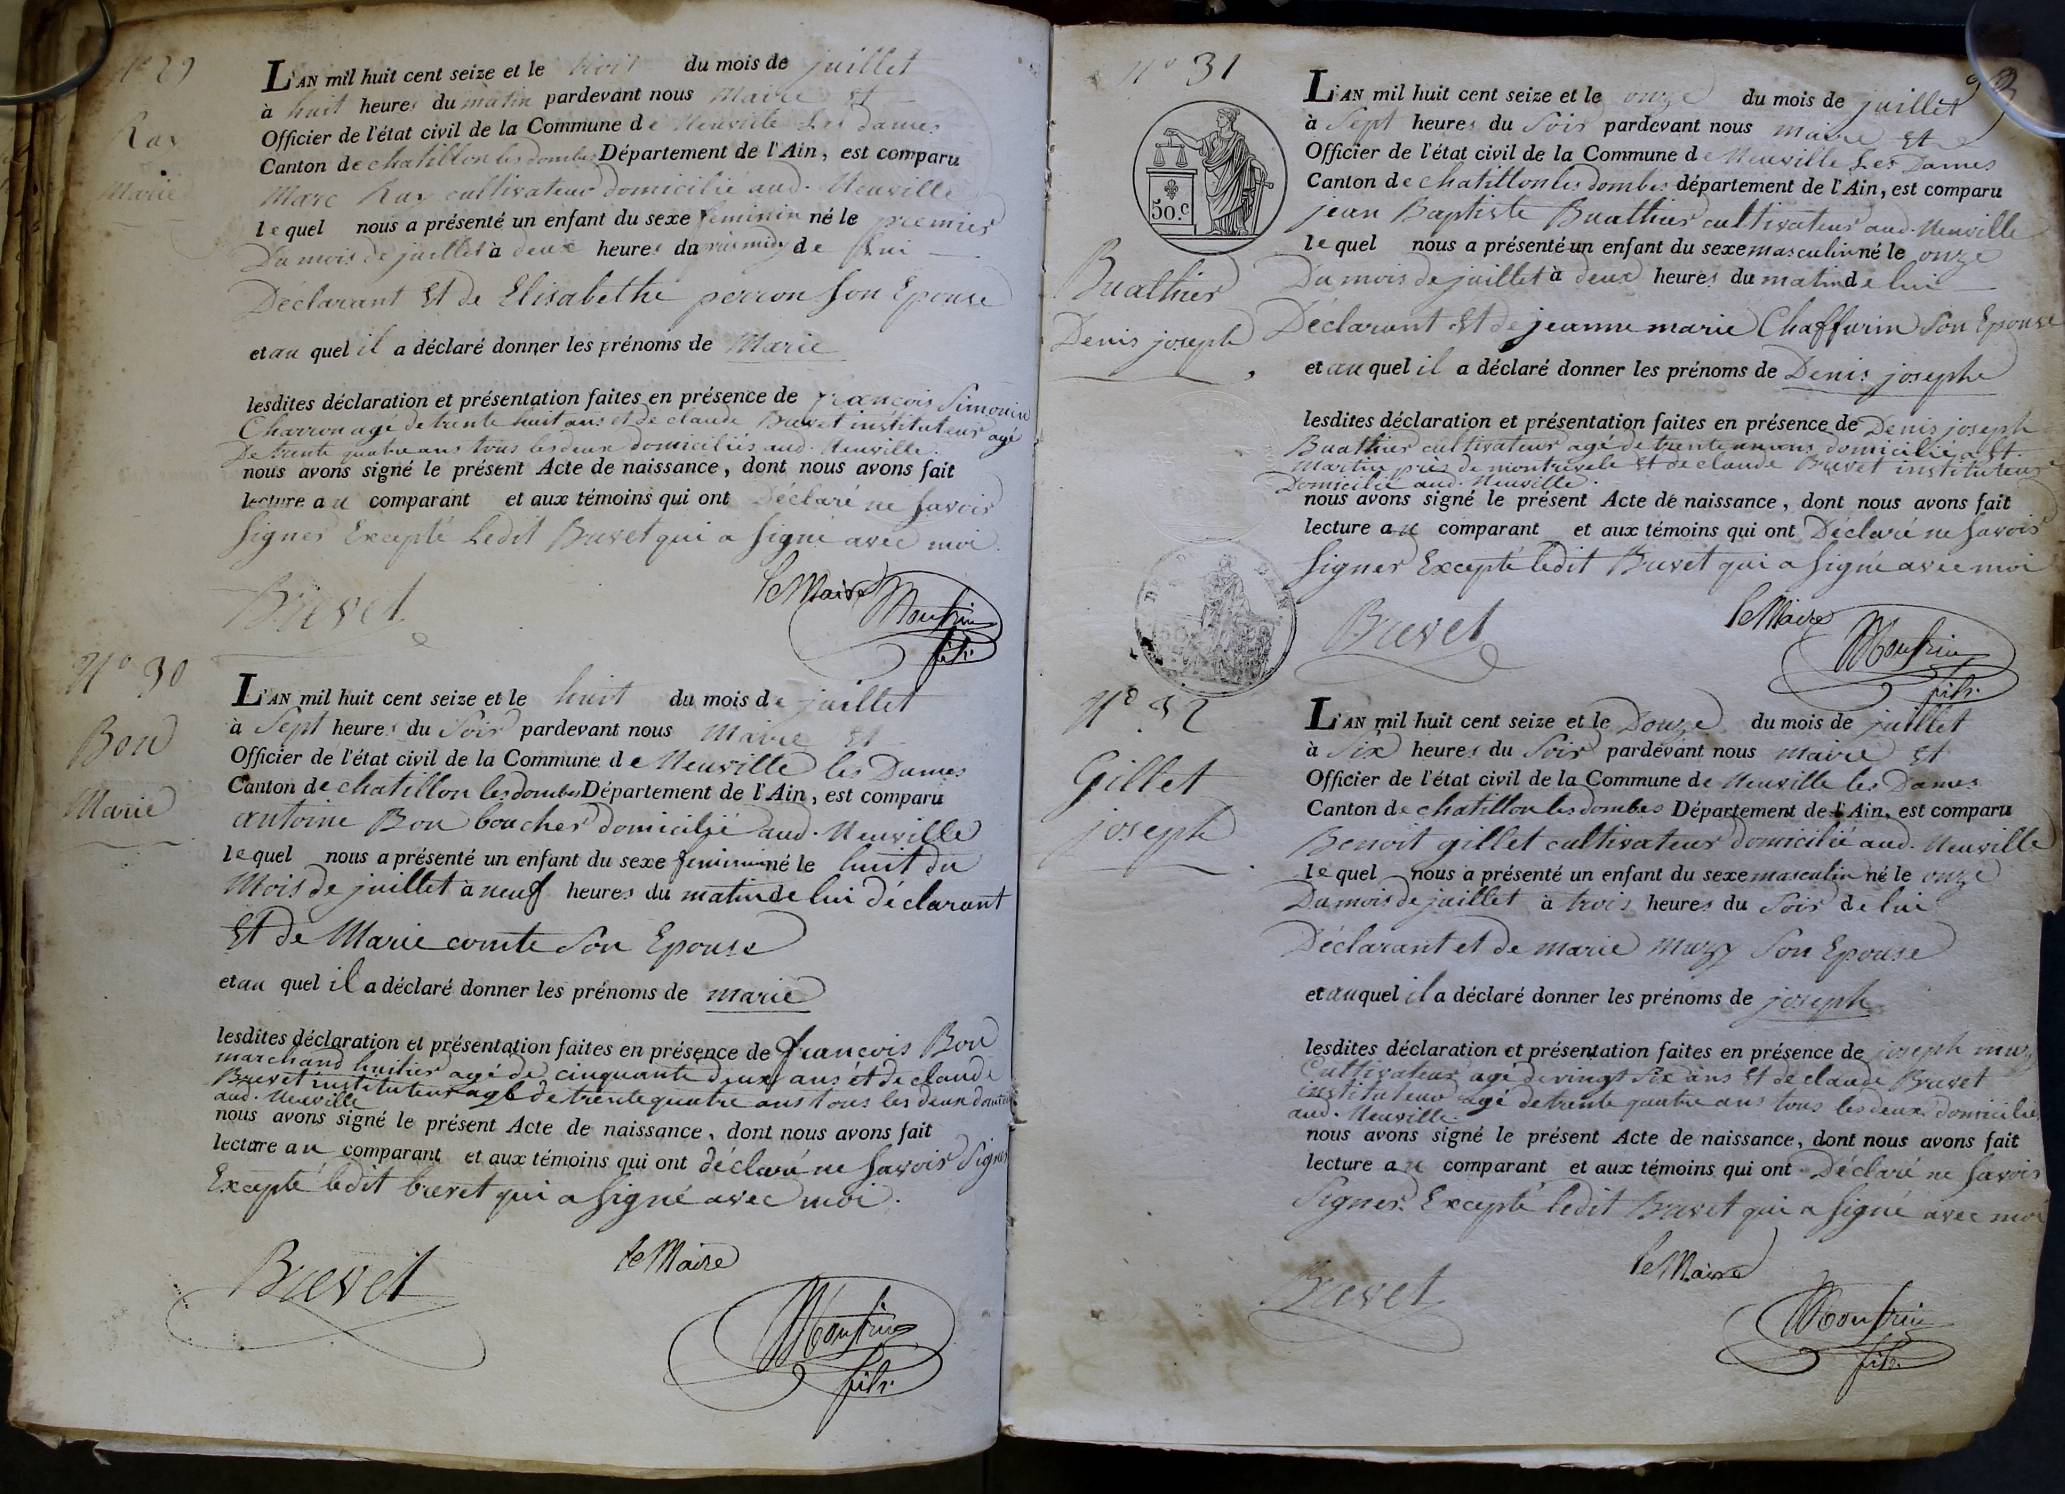 N° 29
Ray
Marie
L'AN mil huit cent seize et le trois du mois de juillet
à huit heures du matin pardevant nous Maire et
Officier de l'état civil de la Commune de Neuville Les Dames
Canton de chatillon les dombes Département de l'Ain, est comparu
Marc Ray cultivateur domicilié aud. Neuville
lequel nous a présenté un enfant du sexe feminin né le premier
Du mois de juillet à deux heures du de lui
Déclarant Et de Elisabethe perron Son Epouse
et au quel il a déclaré donner les prénoms de Marie
lesdites déclaration et présentation faites en présence de françois Simonin
Charron agé de trente huit ans et de claude Buvet instituteur agé
De trente quatre ans tous les deux domiciliés aud. Neuville.
nous avons signé le présent Acte de naissance, dont nous avons fait
lecture au comparant et aux témoins qui ont Déclaré ne Savoir
Signer Excepté Ledit Buvet qui a Signé avec moi.
Buvet
le Maire
fils
N° 30
Bon
Marie
L'AN mil huit cent seize et le huit du mois de juillet
à Sept heures du Soir pardevant nous Maire Et
Officier de l'état civil de la Commune de Neuville les Dames
Canton de chatillon les dombes Département de l'Ain, est comparu
antoine Bon boucher domicilié aud. Neuville
lequel nous a présenté un enfant du sexe feminin né le huit du
Mois de juillet à neuf heures du matin de lui déclarant
Et de Marie comte Son Epouse
et au quel il a déclaré donner les prénoms de marie
lesdites déclaration et présentation faites en présence de françois Bon
marchand huilier agé de cinquante deux ans et de claude
Buvet instituteur agé de trente quatre ans tous les deux
aud. Neuville
nous avons signé le présent Acte de naissance, dont nous avons fait
lecture au comparant et aux témoins qui ont déclaré ne Savoir Signer
Excepté ledit buvet qui a Signé avec moi.
Buvet
le Maire
fils
N° 31
50.c
Buathier
Denis joseph
L'AN mil huit cent seize et le onze du mois de juillet
à Sept heures du Soir pardevant nous maire Et
Officier de l'état civil de la Commune de Neuville Les Dames
Canton de chatillon les dombes département de l'Ain, est comparu
jean Baptiste Buathier cultivateur aud. Neuville
lequel nous a présenté un enfant du sexe masculin né le onze
Du mois de juillet à deux heures du matin de lui
Déclarant Et de jeanne marie Chaffurin Son Epouse
et au quel il a déclaré donner les prénoms de Denis josephe
lesdites déclaration et présentation faites en présence de Denis joseph
Buathier cultivateur agé de trente un ans domicilié a St.
Martin près de montrevele Et de claude Buvet instituteur
Domicilié aud. Neuville.
nous avons signé le présent Acte de naissance, dont nous avons fait
lecture au comparant et aux témoins qui ont Déclaré ne Savoir
Signer Excepté ledit Buvet qui a Signé avec moi
Buvet
le Maire
fils.
N° 32
Gillet
joseph
L'AN mil huit cent seize et le Douze du mois de juillet
à Six heures du Soir pardevant nous maire Et
Officier de l'état civil de la Commune de Neuville les Dames
Canton de chatillon les dombes Département de l'Ain, est comparu
Benoit gillet cultivateur domicilié aud. Neuville
lequel nous a présenté un enfant du sexe masculin né le onze
Du mois de juillet à trois heures du Soir de lui
Déclarant et de marie muzy Son Epouse
et auquel il a déclaré donner les prénoms de joseph
lesdites déclaration et présentation faites en présence de joseph muzy
Cultivateur agé de vingt Six ans Et de claude Buvet
instituteur agé de trente quatre ans tous les deux domicilié
aud. Neuville.
nous avons signé le présent Acte de naissance, dont nous avons fait
lecture au comparant et aux témoins qui ont Déclaré ne Savoir
Signer. Excepté ledit Buvet qui a Signé avec moi
Buvet
le Maire
fils.